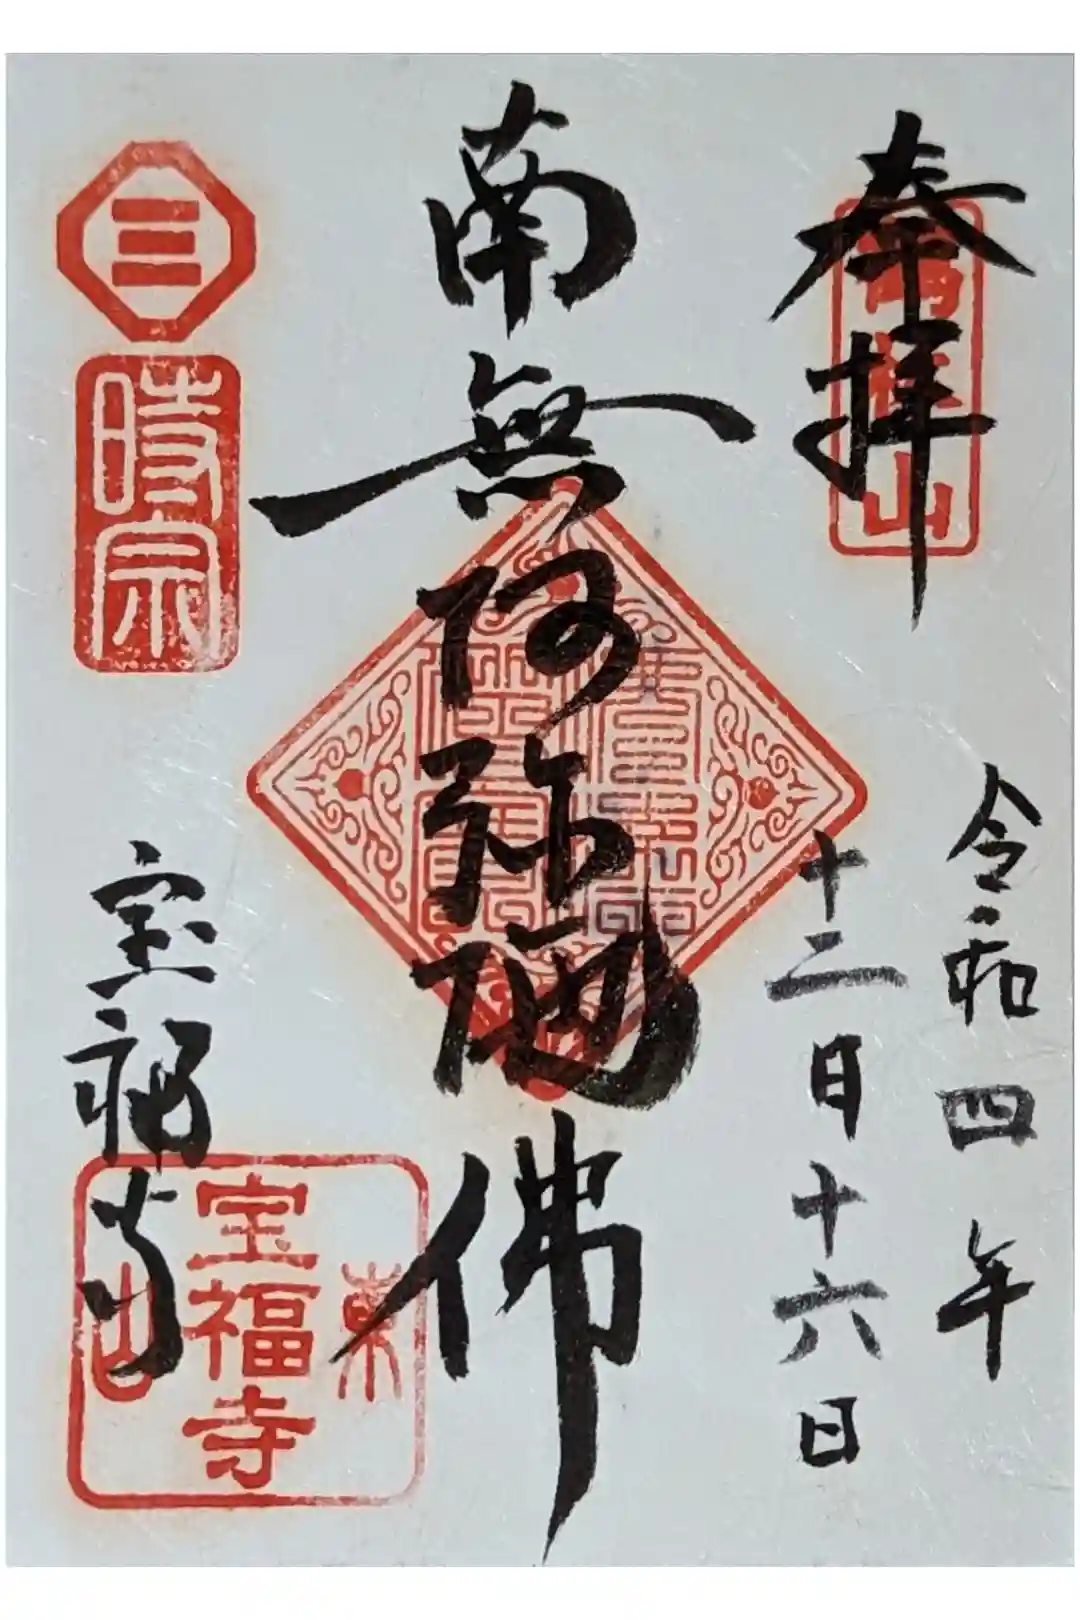 奉拝
山
令和四年
十二日十六日
南無阿弥陁佛
三
時宗
宝福寺
東
宝福寺
山